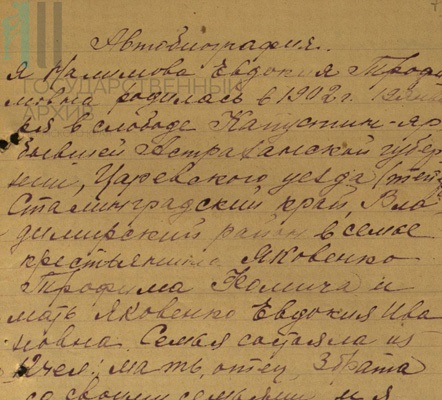 Автобиография.
Я Налимова Евдокия Трофи
мовна родилась в 1902 г. 12 янва
ря в слободе Капустин-Яр
бывшей Астраханской губер
нии, Царевского уезда (теп.
Сталинградский край, Вла
димирский район в семье
крестьянина Яковенко
Трофима Фомича и
мать Яковенко Евдокия Ива
новна. Семья состояла из
12 чел: мать, отец, 3 брата
со своими семьями и я
ГОСУДАРСТВЕННЫЙ
АРХИВ